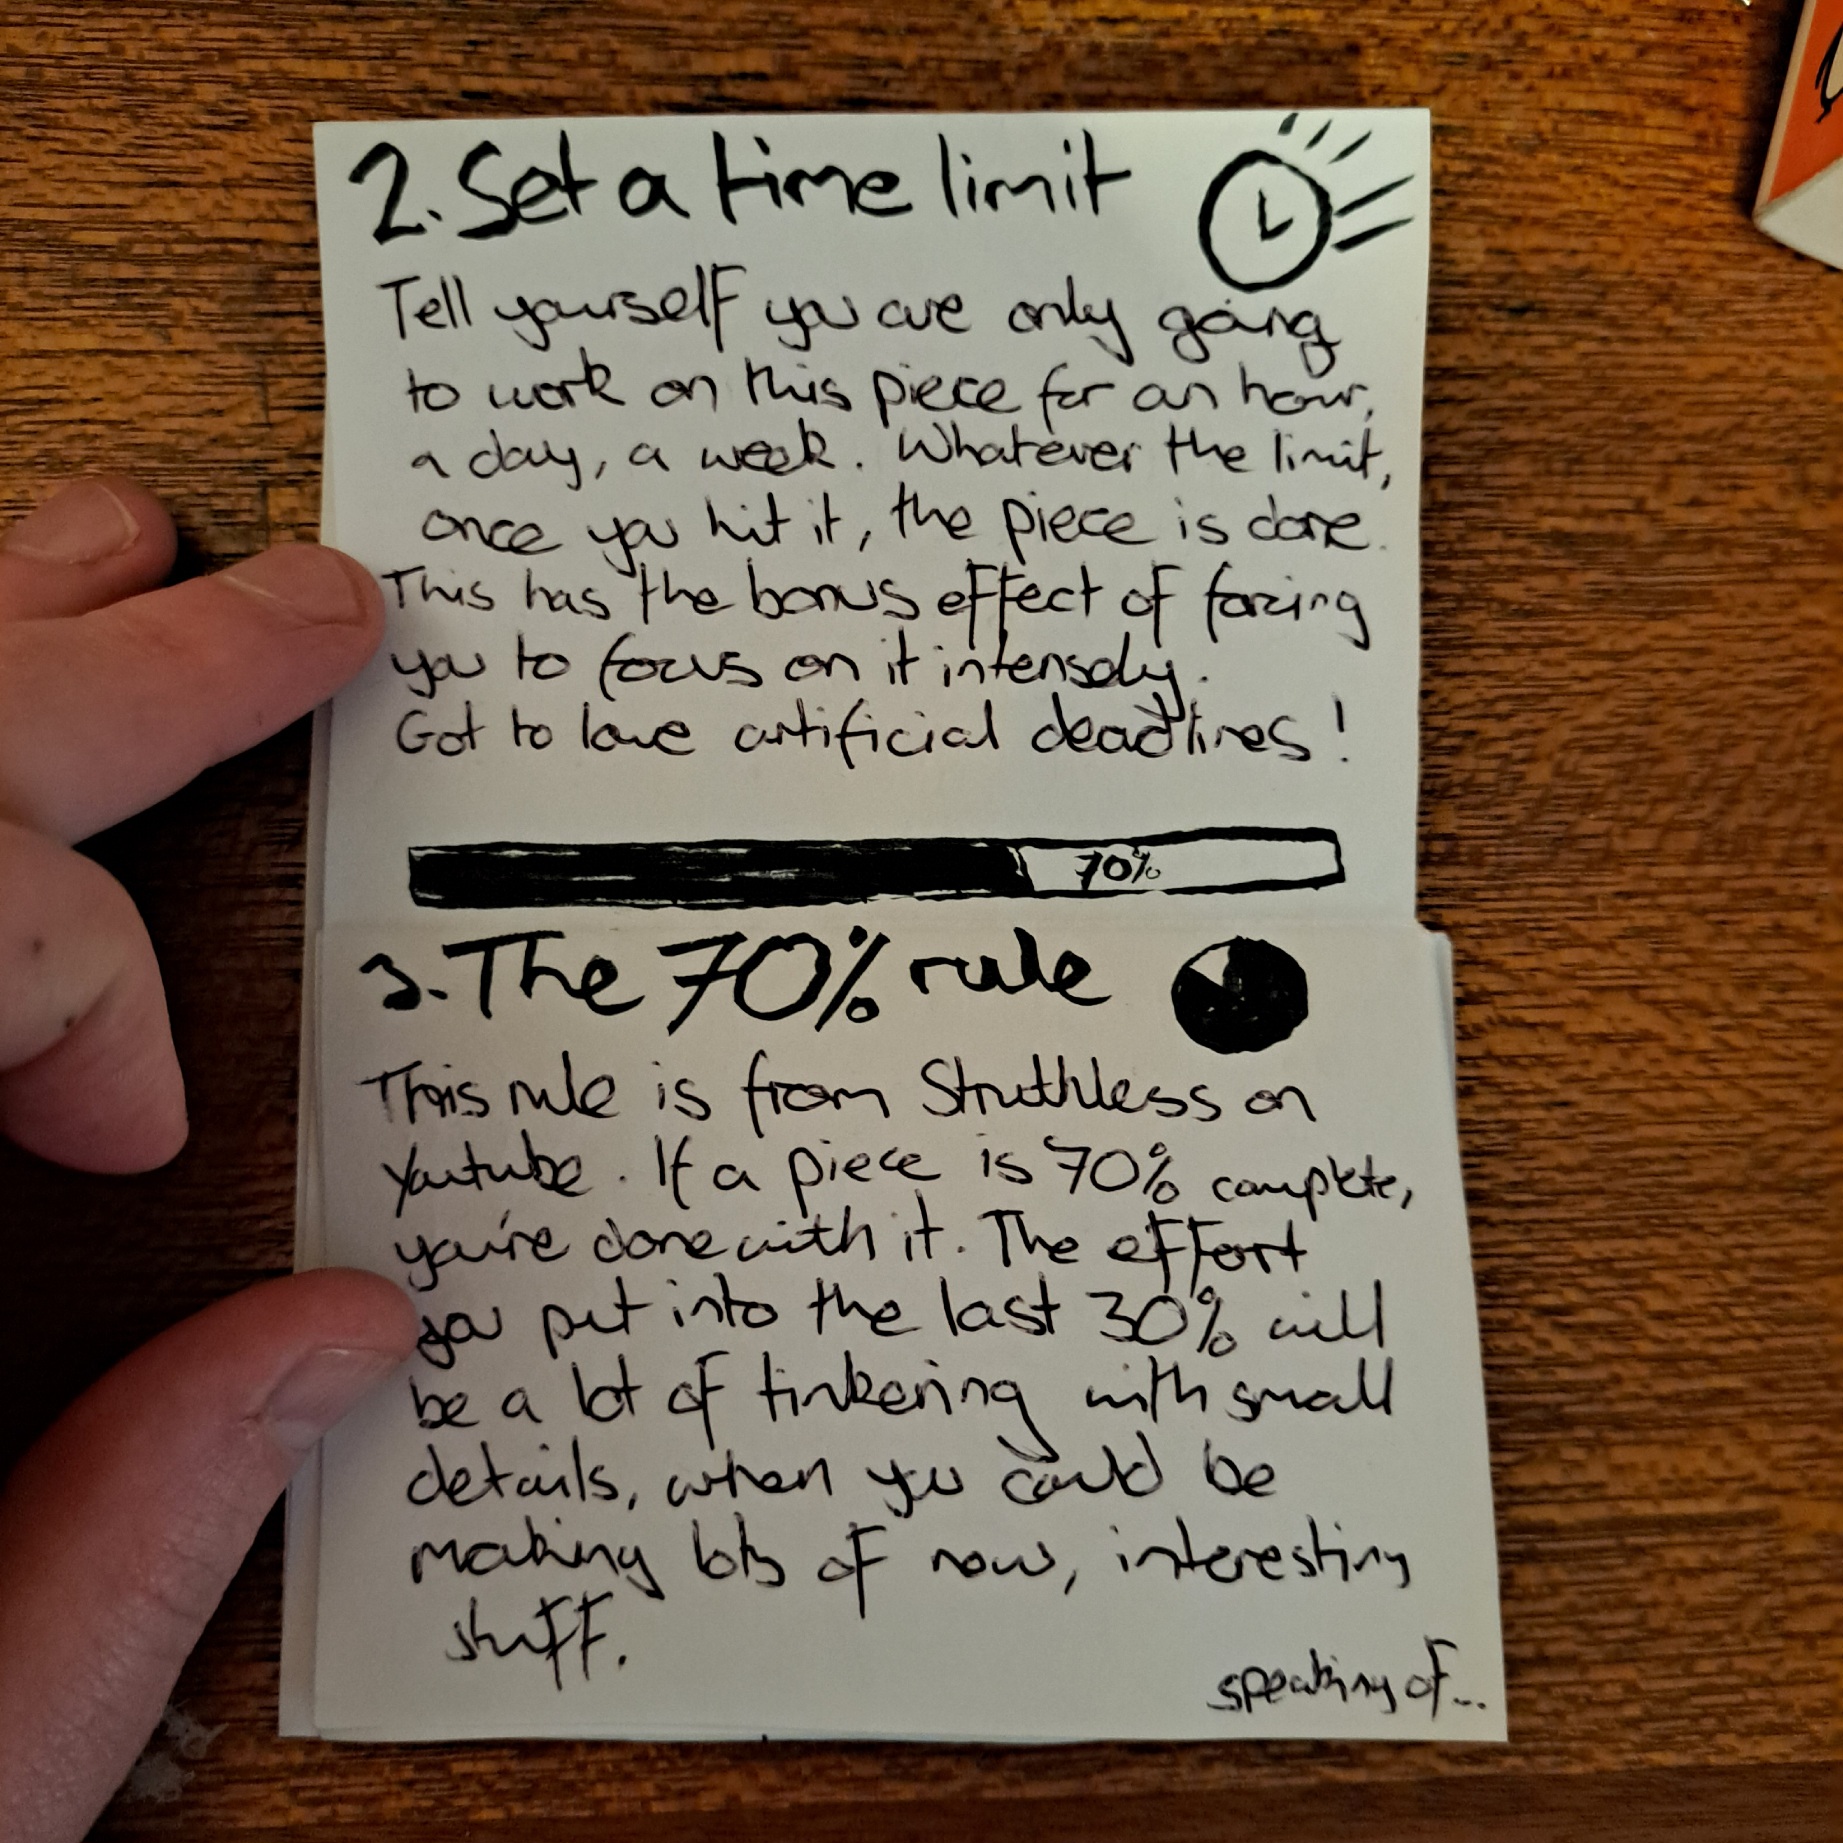 2. Set a time limit
Tell yourself you are only going
to work on this piece for an hour,
a day, a week. Whatever the limit,
once you hit it, the piece is done.
This has the bonus effect of forcing
you to focus on it intensely.
Got to love artificial deadlines!
70%
3. The 70% rule
This rule is from Struthless on
Youtube. If a piece is 70% complete,
you're done with it. The effort
you put into the last 30% will
be a lot of tinkering with small
details, when you could be
making lots of new, interesting
stuff.
speaking of...